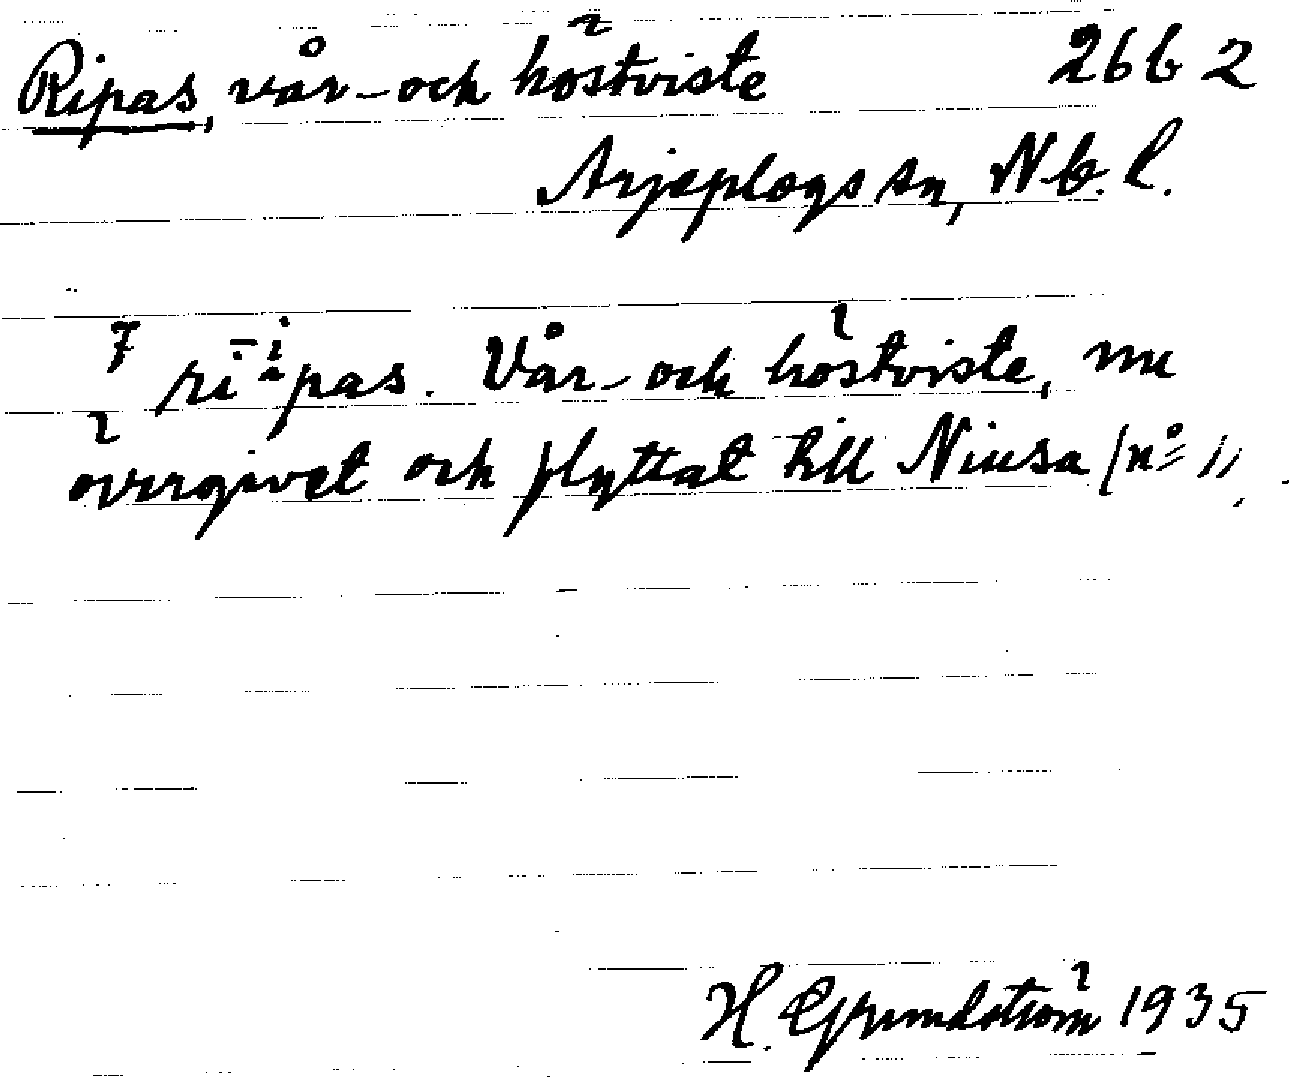 Ripas, vår- och höstviste 26b 2
Arjeplogs sn, Nb. l.
7 rīi̯pas. Vår- och höstviste, nu
övergivet och flyttat till Niusa (nº 1).
H. Grundström 1935